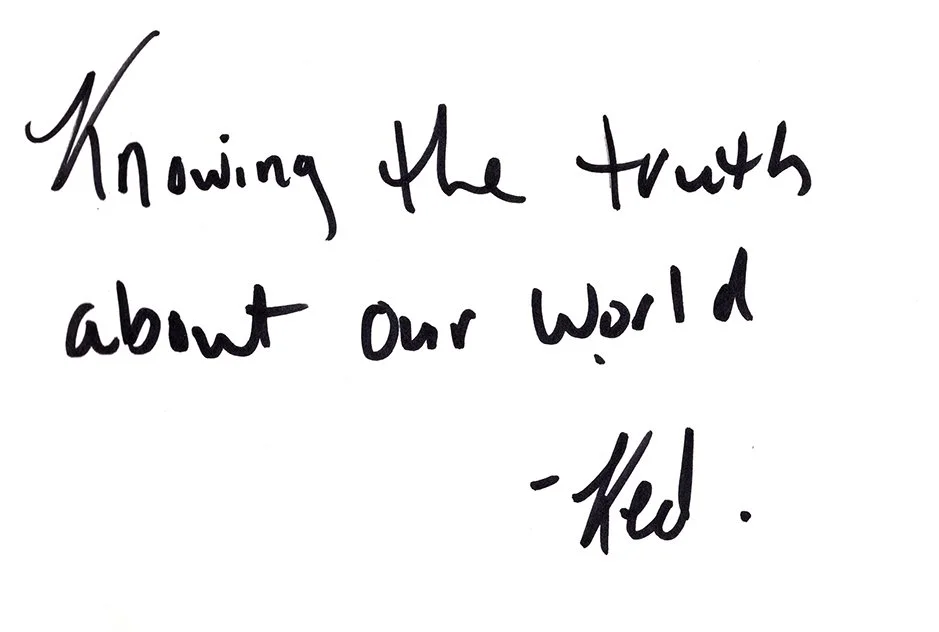 Knowing the truth
about our world
- Ked .